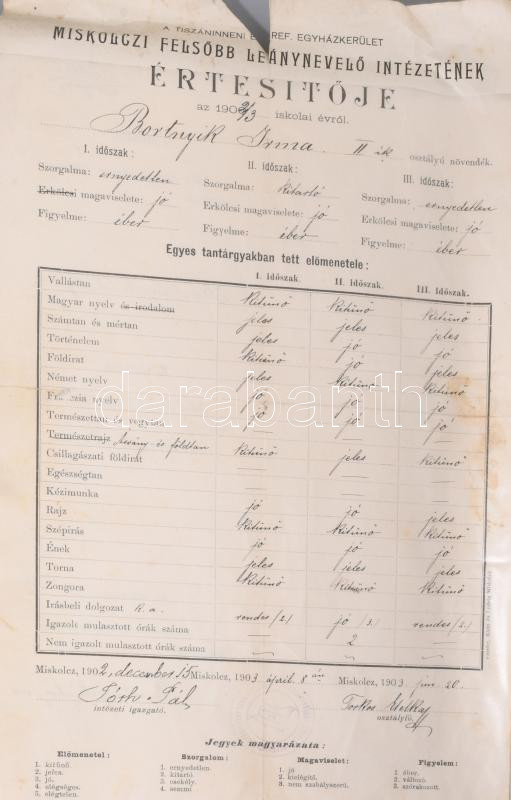 A TISZÁNINNENI EV. REF. EGYHÁZKERÜLET
MISKOLCZI FELSŐBB LEÁNYNEVELŐ INTÉZETÉNEK
ÉRTESITŐJE
az 1902/3 iskolai évről.
Bortnyik Irma II ik osztályú növendék.
I. időszak: II. időszak: III. időszak:
Szorgalma: ernyedetlen Szorgalma: kitartó Szorgalma: ernyedetlen
Erkölcsi magaviselete: jó Erkölcsi magaviselete: jó Erkölcsi magaviselete: jó
Figyelme: éber Figyelme: éber Figyelme: éber
Egyes tantárgyakban tett előmenetele:
I. időszak. II. időszak. III. időszak.
Vallástan kitünő kitünő kitünő
Magyar nyelv és irodalom jeles jeles jeles
Számtan és mértan jeles jó jó
Történelem kitünő jó kitünő
Földirat jeles kitünő jó
Német nyelv jó jó jó
Franczia nyelv jó
Természettan és vegytan
Természetrajz ásvány- és földtan kitünő jeles kitünő
Csillagászati földirat
Egészségtan — —
Kézimunka — —
Rajz jó jó jeles
Szépirás kitünő kitünő kitünő
Ének jó jó jó
Torna jeles jeles jeles
Zongora kitünő kitünő kitünő
Irásbeli dolgozat k. a. rendes (2.) jó (3.) rendes (2.)
Igazolt mulasztott órák száma — 2 —
Nem igazolt mulasztott órák száma
Miskolcz, 1902 december 15 Miskolcz, 1903 ápril. 8 án Miskolcz, 1903 jun. 20.
Tóth Pál
intézeti igazgató.
Torkos Etelka
osztályfő.
Jegyek magyarázata:
Előmenetel: Szorgalom: Magaviselet: Figyelem:
1. kitünő. 1. ernyedetlen. 1. jó 1. éber.
2. jeles. 2. kitartó. 2. kielégítő. 2. változó.
3. jó. 3. csekély. 3. nem szabályszerű. 3. szórakozott.
4. elégséges. 4. semmi
5. elégtelen.
darabanth